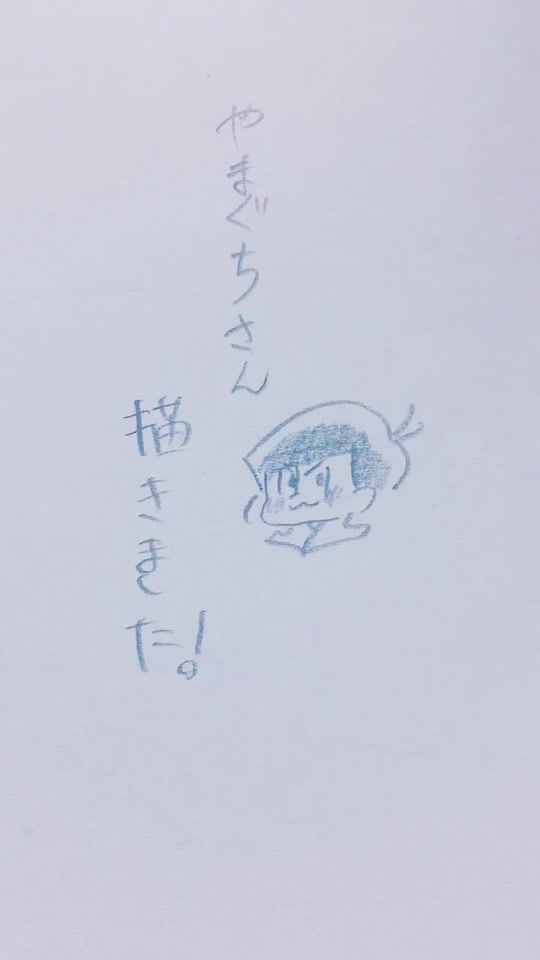 やまぐちさん
描きまた!